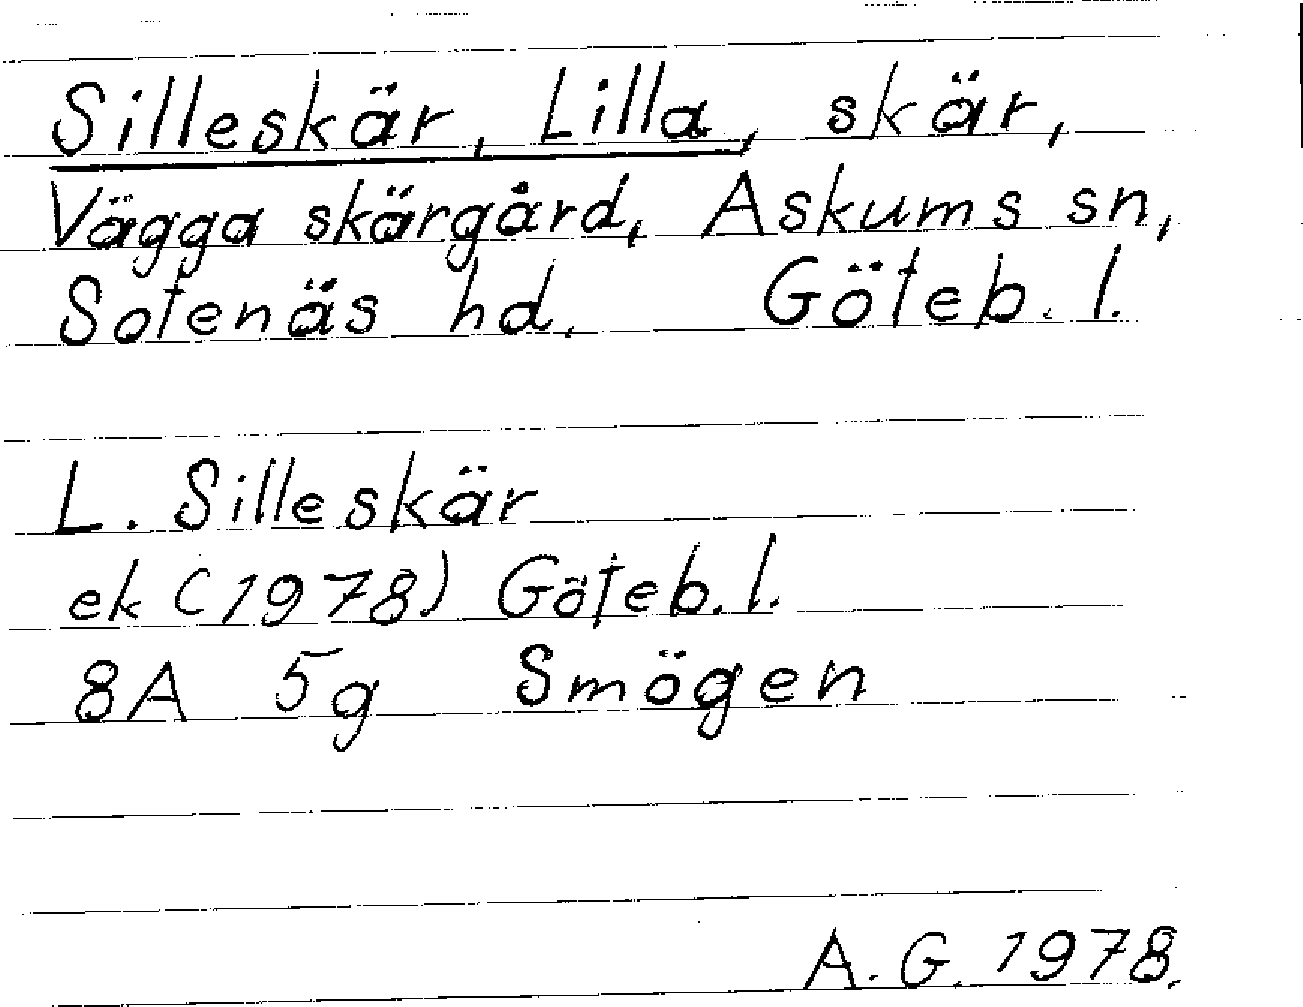 Silleskär, Lilla, skär,
Vägga skärgård, Askums sn,
Sotenäs hd. Göteb. l.
L. Silleskär
ek (1978) Göteb. l.
8A 5g Smögen
A. G. 1978.